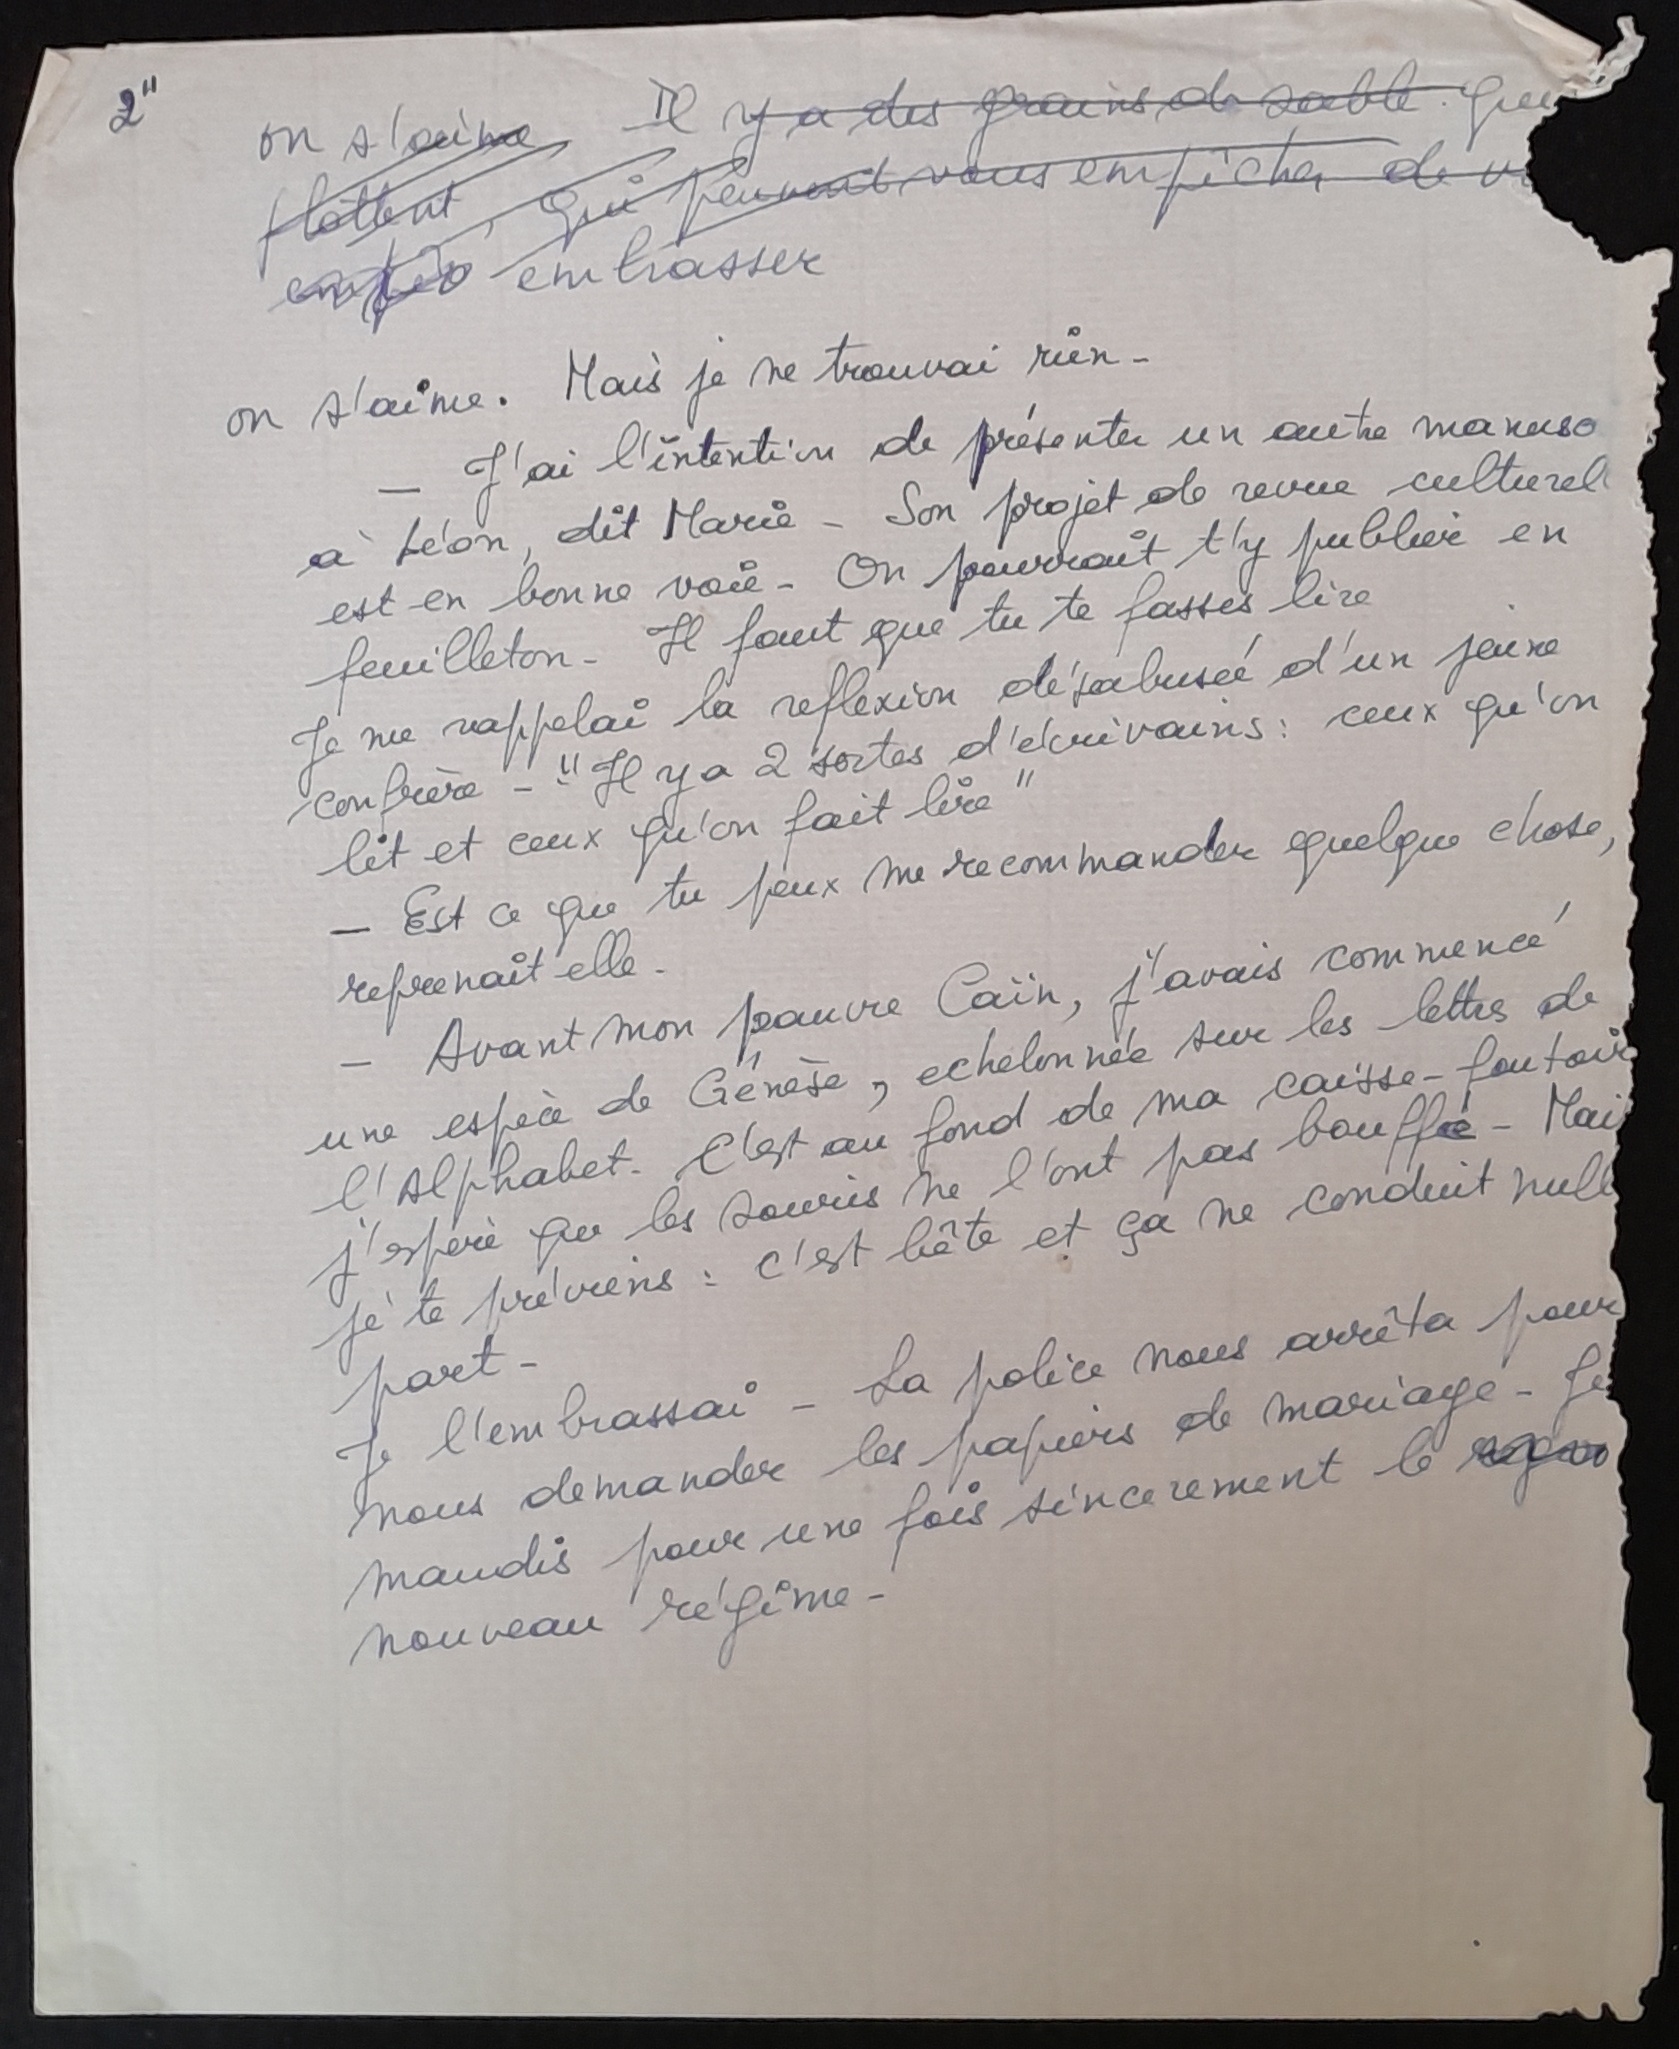 2"
on s'aime Il y a des grains de sable qui
flottent, qui peuvent vous empêcher de v
embrasser
on s'aime. Mais je ne trouvai rien -
— J'ai l'intention de présenter un autre manusc
à Léon, dit Marie - Son projet de revue culturel
est en bonne voie - On pourrait t'y publier en
feuilleton - Il faut que tu te fasses lire
Je me rappelai la reflexion désabusée d'un jeune
confrère - "Il y a 2 sortes d'écrivains : ceux qu'on
lit et ceux qu'on fait lire"
— Est ce que tu peux me recommander quelque chose,
reprenait elle -
— Avant mon pauvre Caïn, j'avais commencé
une espèce de Génèse, echelonnée sur les lettres de
l'Alphabet - C'est au fond de ma caisse-foutoir
j'espère que les souris ne l'ont pas bouffée - Mai
je te préviens : c'est bête et ça ne conduit null
part -
Je l'embrassai - La police nous arrêta pour
nous demander les papiers de mariage - Je
maudis pour une fois sincerement le
nouveau régime -